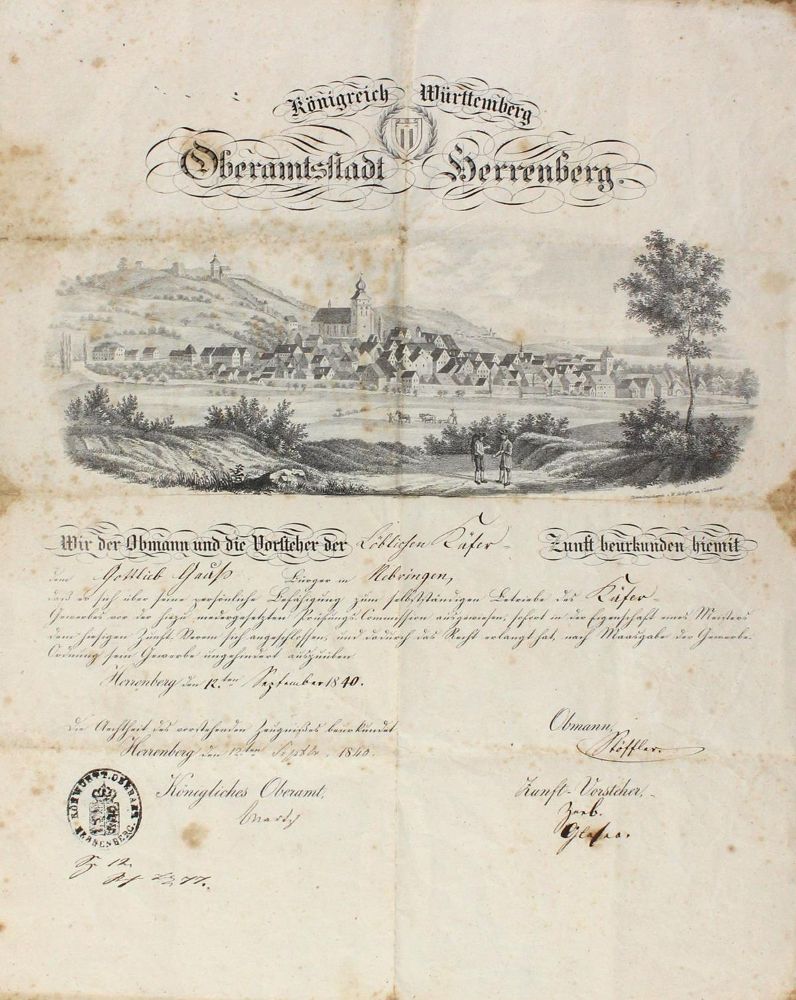 Königreich Württemberg
Oberamtsstadt Herrenberg.
Wir der Obmann und die Vorsteher der Löblichen Küfer- Zunft beurkunden hiemit
dem Gottlieb Gauß Bürger in Nebringen,
daß er sich über seine persönliche Befähigung zum selbstständigen Betriebe des Küfer-
Gewerbes vor der hiezu niedergesetzten Prüfungs-Commission ausgewiesen, sofort in der Eigenschaft eines Meisters
dem hiesigen Zunft-Verein sich angeschlossen, und dadurch das Recht erlangt hat, nach Maasgabe der Gewerbe-
Ordnung sein Gewerbe ungehindert auszuüben
Herrenberg den 12.ten September 1840.
Die Aechtheit des vorstehenden Zeugnißes beurkundet
Herrenberg den 12ten Septbr. 1840.
Königliches Oberamt,
Obmann,
Stöffler
Zunft-Vorsteher,
Zerb.
KÖN. WÜRTT. OBERAMT HERRENBERG.